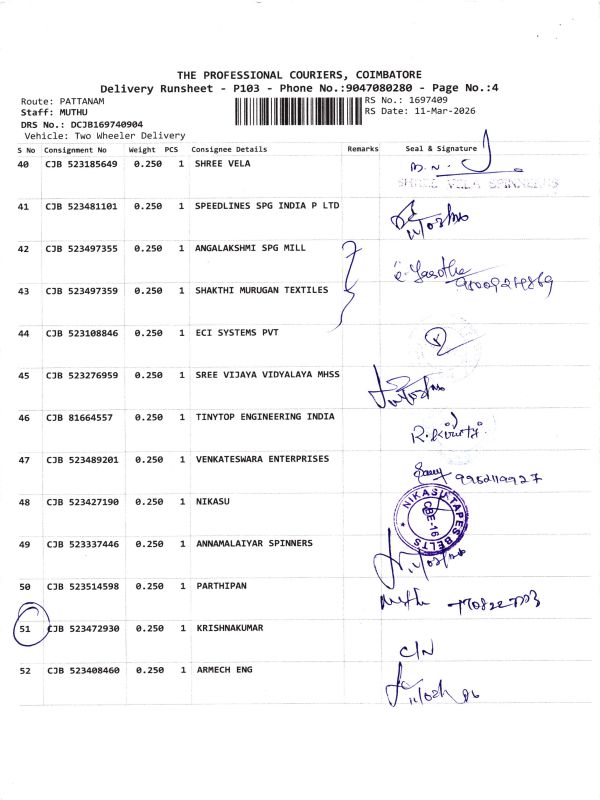 THE PROFESSIONAL COURIERS, COIMBATORE
Delivery Runsheet - P103 - Phone No.:9047080280 - Page No.:4
Route: PATTANAM
RS No.: 1697409
Staff: MUTHU
RS Date: 11-Mar-2026
DRS No.: DCJB169740904
Vehicle: Two Wheeler Delivery
S No Consignment No Weight PCS Consignee Details Remarks Seal & Signature
40 CJB 523185649 0.250 1 SHREE VELA
SHREE VELA SPINNERS
41 CJB 523481101 0.250 1 SPEEDLINES SPG INDIA P LTD
42 CJB 523497355 0.250 1 ANGALAKSHMI SPG MILL
43 CJB 523497359 0.250 1 SHAKTHI MURUGAN TEXTILES
44 CJB 523108846 0.250 1 ECI SYSTEMS PVT
45 CJB 523276959 0.250 1 SREE VIJAYA VIDYALAYA MHSS
46 CJB 81664557 0.250 1 TINYTOP ENGINEERING INDIA
47 CJB 523489201 0.250 1 VENKATESWARA ENTERPRISES
48 CJB 523427190 0.250 1 NIKASU
NIKASU TAPES BELTS
CBE-16
49 CJB 523337446 0.250 1 ANNAMALAIYAR SPINNERS
50 CJB 523514598 0.250 1 PARTHIPAN
51 CJB 523472930 0.250 1 KRISHNAKUMAR
C/N
52 CJB 523408460 0.250 1 ARMECH ENG